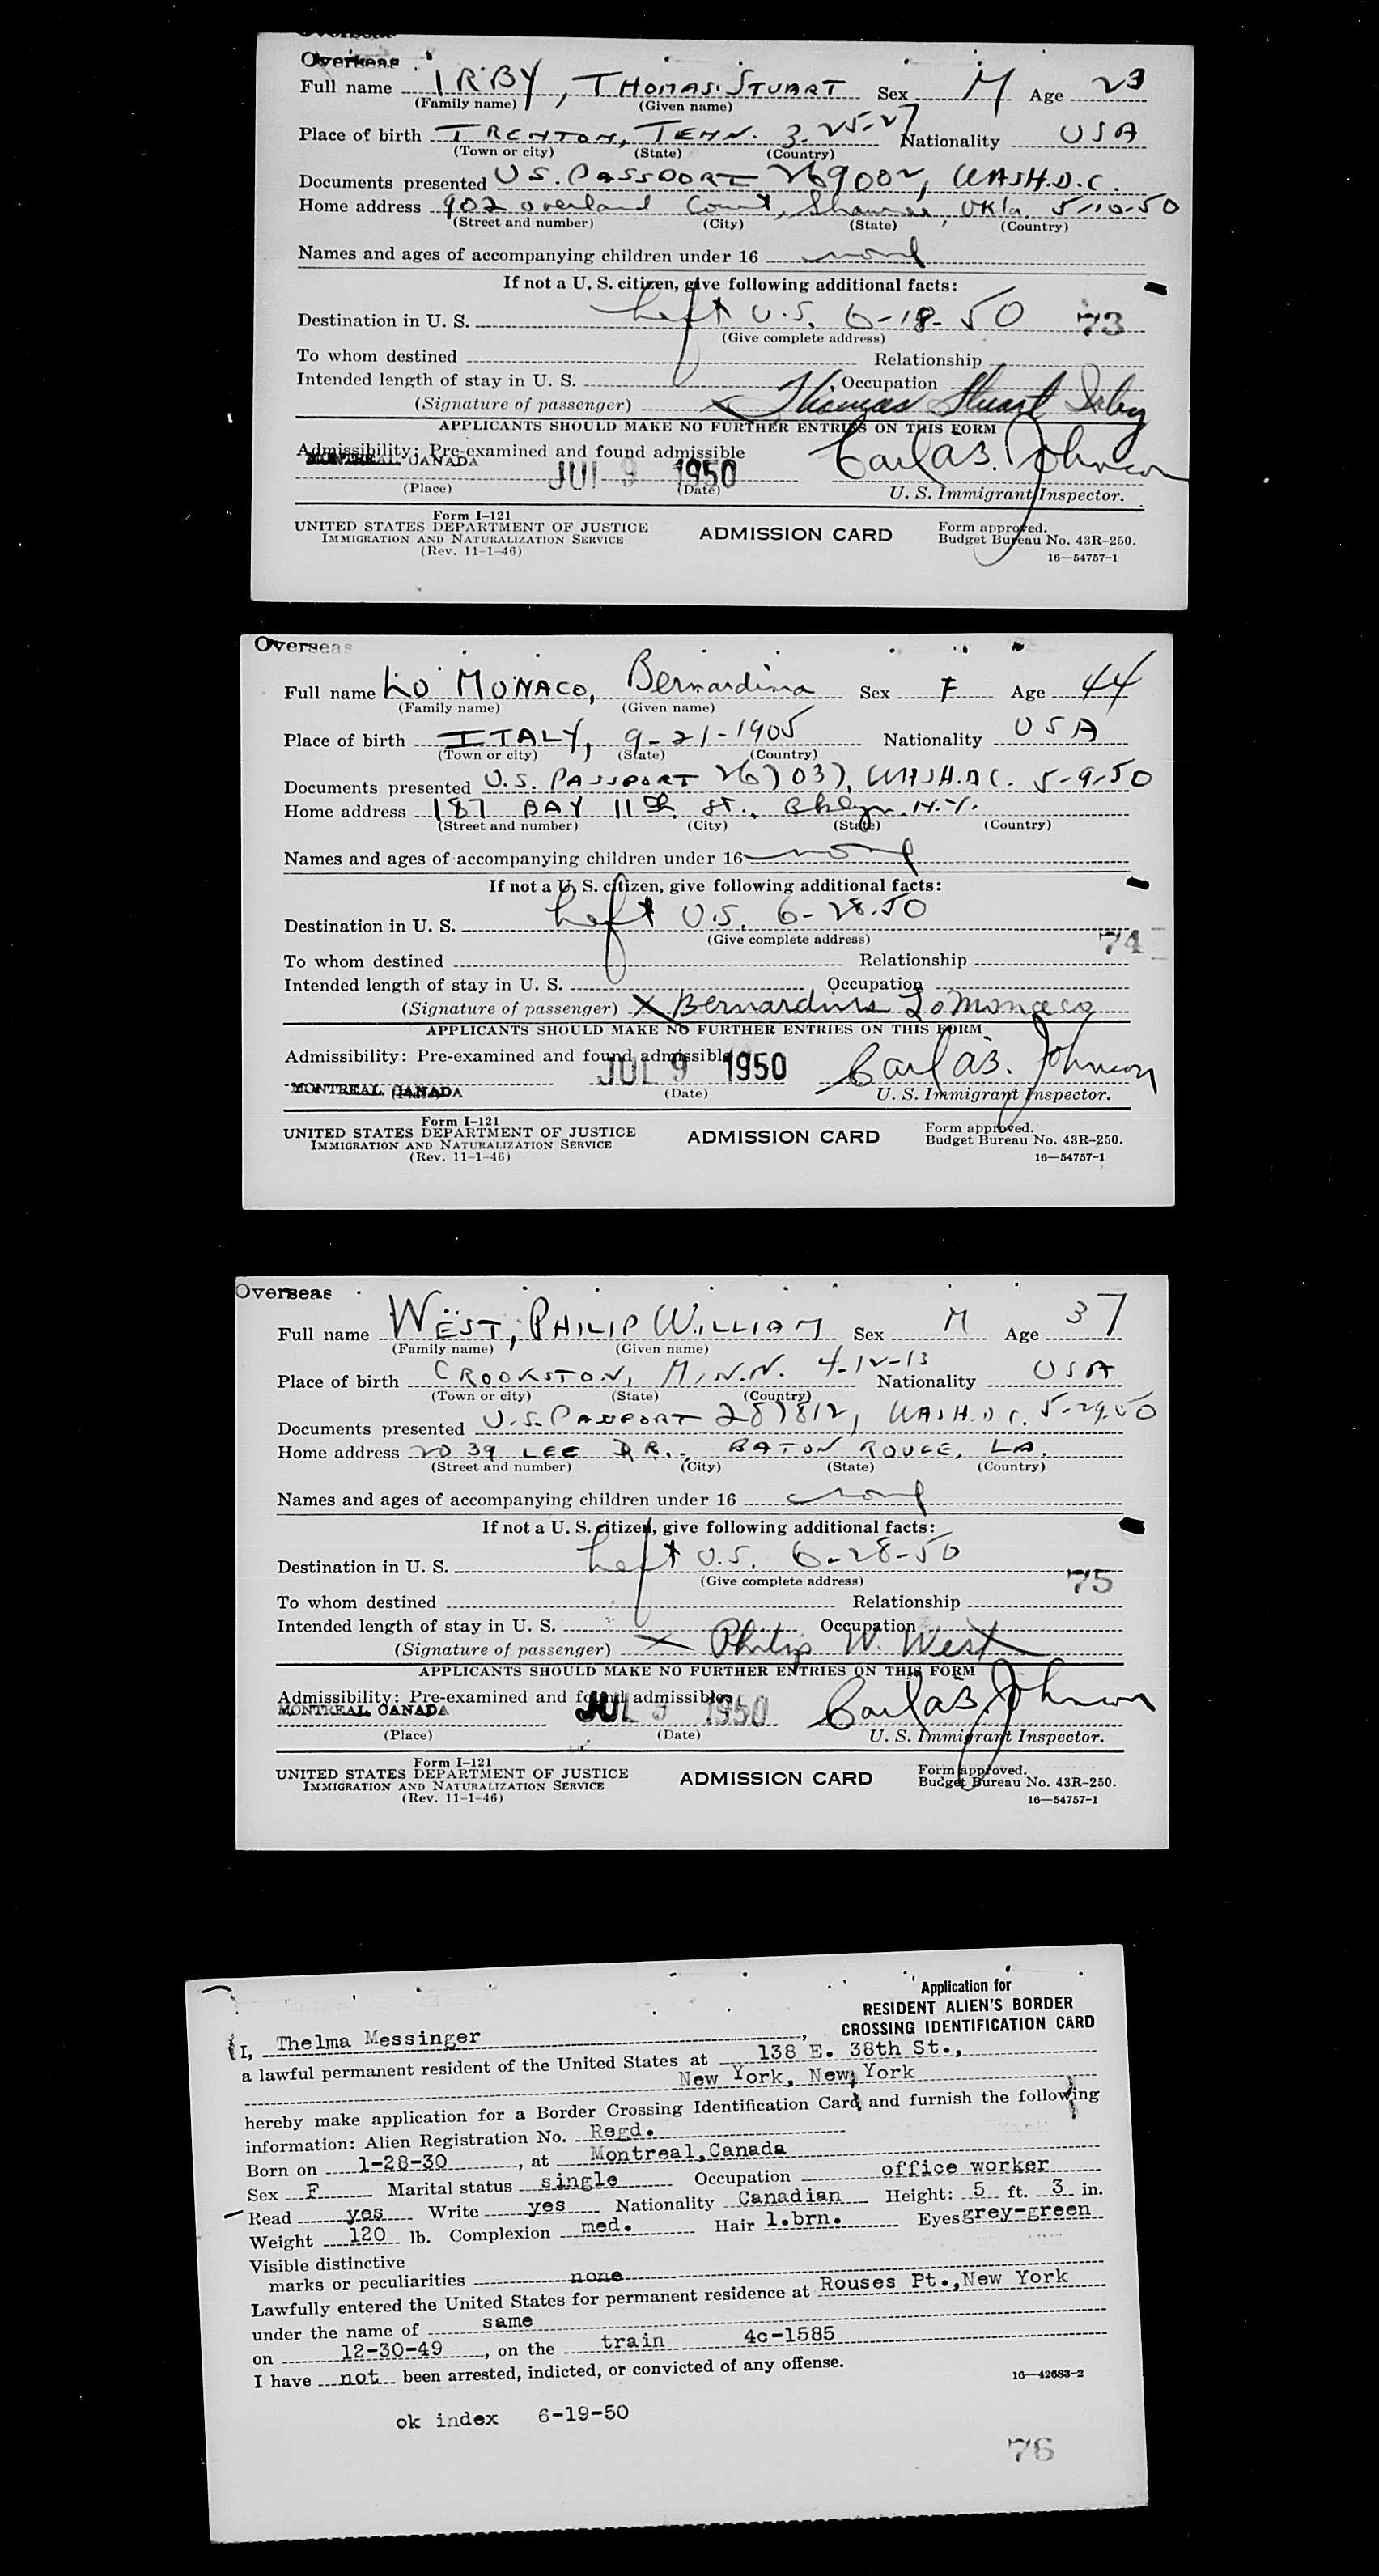 Overseas
Full name IRBY, THOMAS STUART Sex M Age 23
(Family name) (Given name)
Place of birth TRENTON, TENN. 3-25-27 Nationality USA
(Town or city) (State) (Country)
Documents presented U.S. PASSPORT 269002, WASH.D.C.
Home address 902 Overland Court, Shawnee, Okla. 5-10-50
(Street and number) (City) (State) (Country)
Names and ages of accompanying children under 16 none
If not a U. S. citizen, give following additional facts:
Left U.S. 6-18-50
Destination in U. S. 73
(Give complete address)
To whom destined Relationship
Intended length of stay in U. S. Occupation
(Signature of passenger) X Thomas Stuart Irby
APPLICANTS SHOULD MAKE NO FURTHER ENTRIES ON THIS FORM
Admissibility: Pre-examined and found admissible
MONTREAL CANADA JUL 9 1950 Carl A.S. Johnson
(Place) (Date) U. S. Immigrant Inspector.
Form I-121
UNITED STATES DEPARTMENT OF JUSTICE ADMISSION CARD Form approved.
IMMIGRATION AND NATURALIZATION SERVICE Budget Bureau No. 43R-250.
(Rev. 11-1-46) 16—54757-1
Overseas
Full name LO MONACO, Bernardina Sex F Age 44
(Family name) (Given name)
Place of birth ITALY, 9-21-1905 Nationality USA
(Town or city) (State) (Country)
Documents presented U.S. PASSPORT 267037, WASH.DC. 5-9-50
Home address 187 BAY 11th St., Bklyn. N.Y.
(Street and number) (City) (State) (Country)
Names and ages of accompanying children under 16 none
If not a U. S. citizen, give following additional facts:
Left U.S. 6-28-50
Destination in U. S.
(Give complete address) 74
To whom destined Relationship
Intended length of stay in U. S. Occupation
(Signature of passenger) X Bernardina Lo Monaco
APPLICANTS SHOULD MAKE NO FURTHER ENTRIES ON THIS FORM
Admissibility: Pre-examined and found admissible
MONTREAL, CANADA JUL 9 1950 Carl A.S. Johnson
(Place) (Date) U. S. Immigrant Inspector.
Form I-121
UNITED STATES DEPARTMENT OF JUSTICE ADMISSION CARD Form approved.
IMMIGRATION AND NATURALIZATION SERVICE Budget Bureau No. 43R-250.
(Rev. 11-1-46) 16—54757-1
Overseas
Full name WEST, PHILIP WILLIAM Sex M Age 37
(Family name) (Given name)
Place of birth CROOKSTON, MINN. 4-12-13 Nationality USA
(Town or city) (State) (Country)
Documents presented U.S. PASSPORT 287812, WASH.D.C. 5-29-50
Home address 2039 LEE DR., BATON ROUGE, LA.
(Street and number) (City) (State) (Country)
Names and ages of accompanying children under 16 none
If not a U. S. citizen, give following additional facts:
Left U.S. 6-28-50
Destination in U. S.
(Give complete address) 75
To whom destined Relationship
Intended length of stay in U. S. Occupation
(Signature of passenger) X Philip W. West
APPLICANTS SHOULD MAKE NO FURTHER ENTRIES ON THIS FORM
Admissibility: Pre-examined and found admissible
MONTREAL, CANADA JUL 9 1950 Carl A.S. Johnson
(Place) (Date) U. S. Immigrant Inspector.
Form I-121
UNITED STATES DEPARTMENT OF JUSTICE ADMISSION CARD Form approved.
IMMIGRATION AND NATURALIZATION SERVICE Budget Bureau No. 43R-250.
(Rev. 11-1-46) 16—54757-1
Application for
RESIDENT ALIEN'S BORDER
CROSSING IDENTIFICATION CARD
I, Thelma Messinger,
a lawful permanent resident of the United States at 138 E. 38th St.,
New York, New York
hereby make application for a Border Crossing Identification Card and furnish the following
information: Alien Registration No. Regd.
Born on 1-28-30, at Montreal,Canada
Sex F Marital status single Occupation office worker
Read yes Write yes Nationality Canadian Height: 5 ft. 3 in.
Weight 120 lb. Complexion med. Hair l.brn. Eyes grey-green
Visible distinctive
marks or peculiarities none
Lawfully entered the United States for permanent residence at Rouses Pt.,New York
under the name of same
on 12-30-49, on the train 4c-1585
I have not been arrested, indicted, or convicted of any offense.
16—42683-2
ok index 6-19-50
76